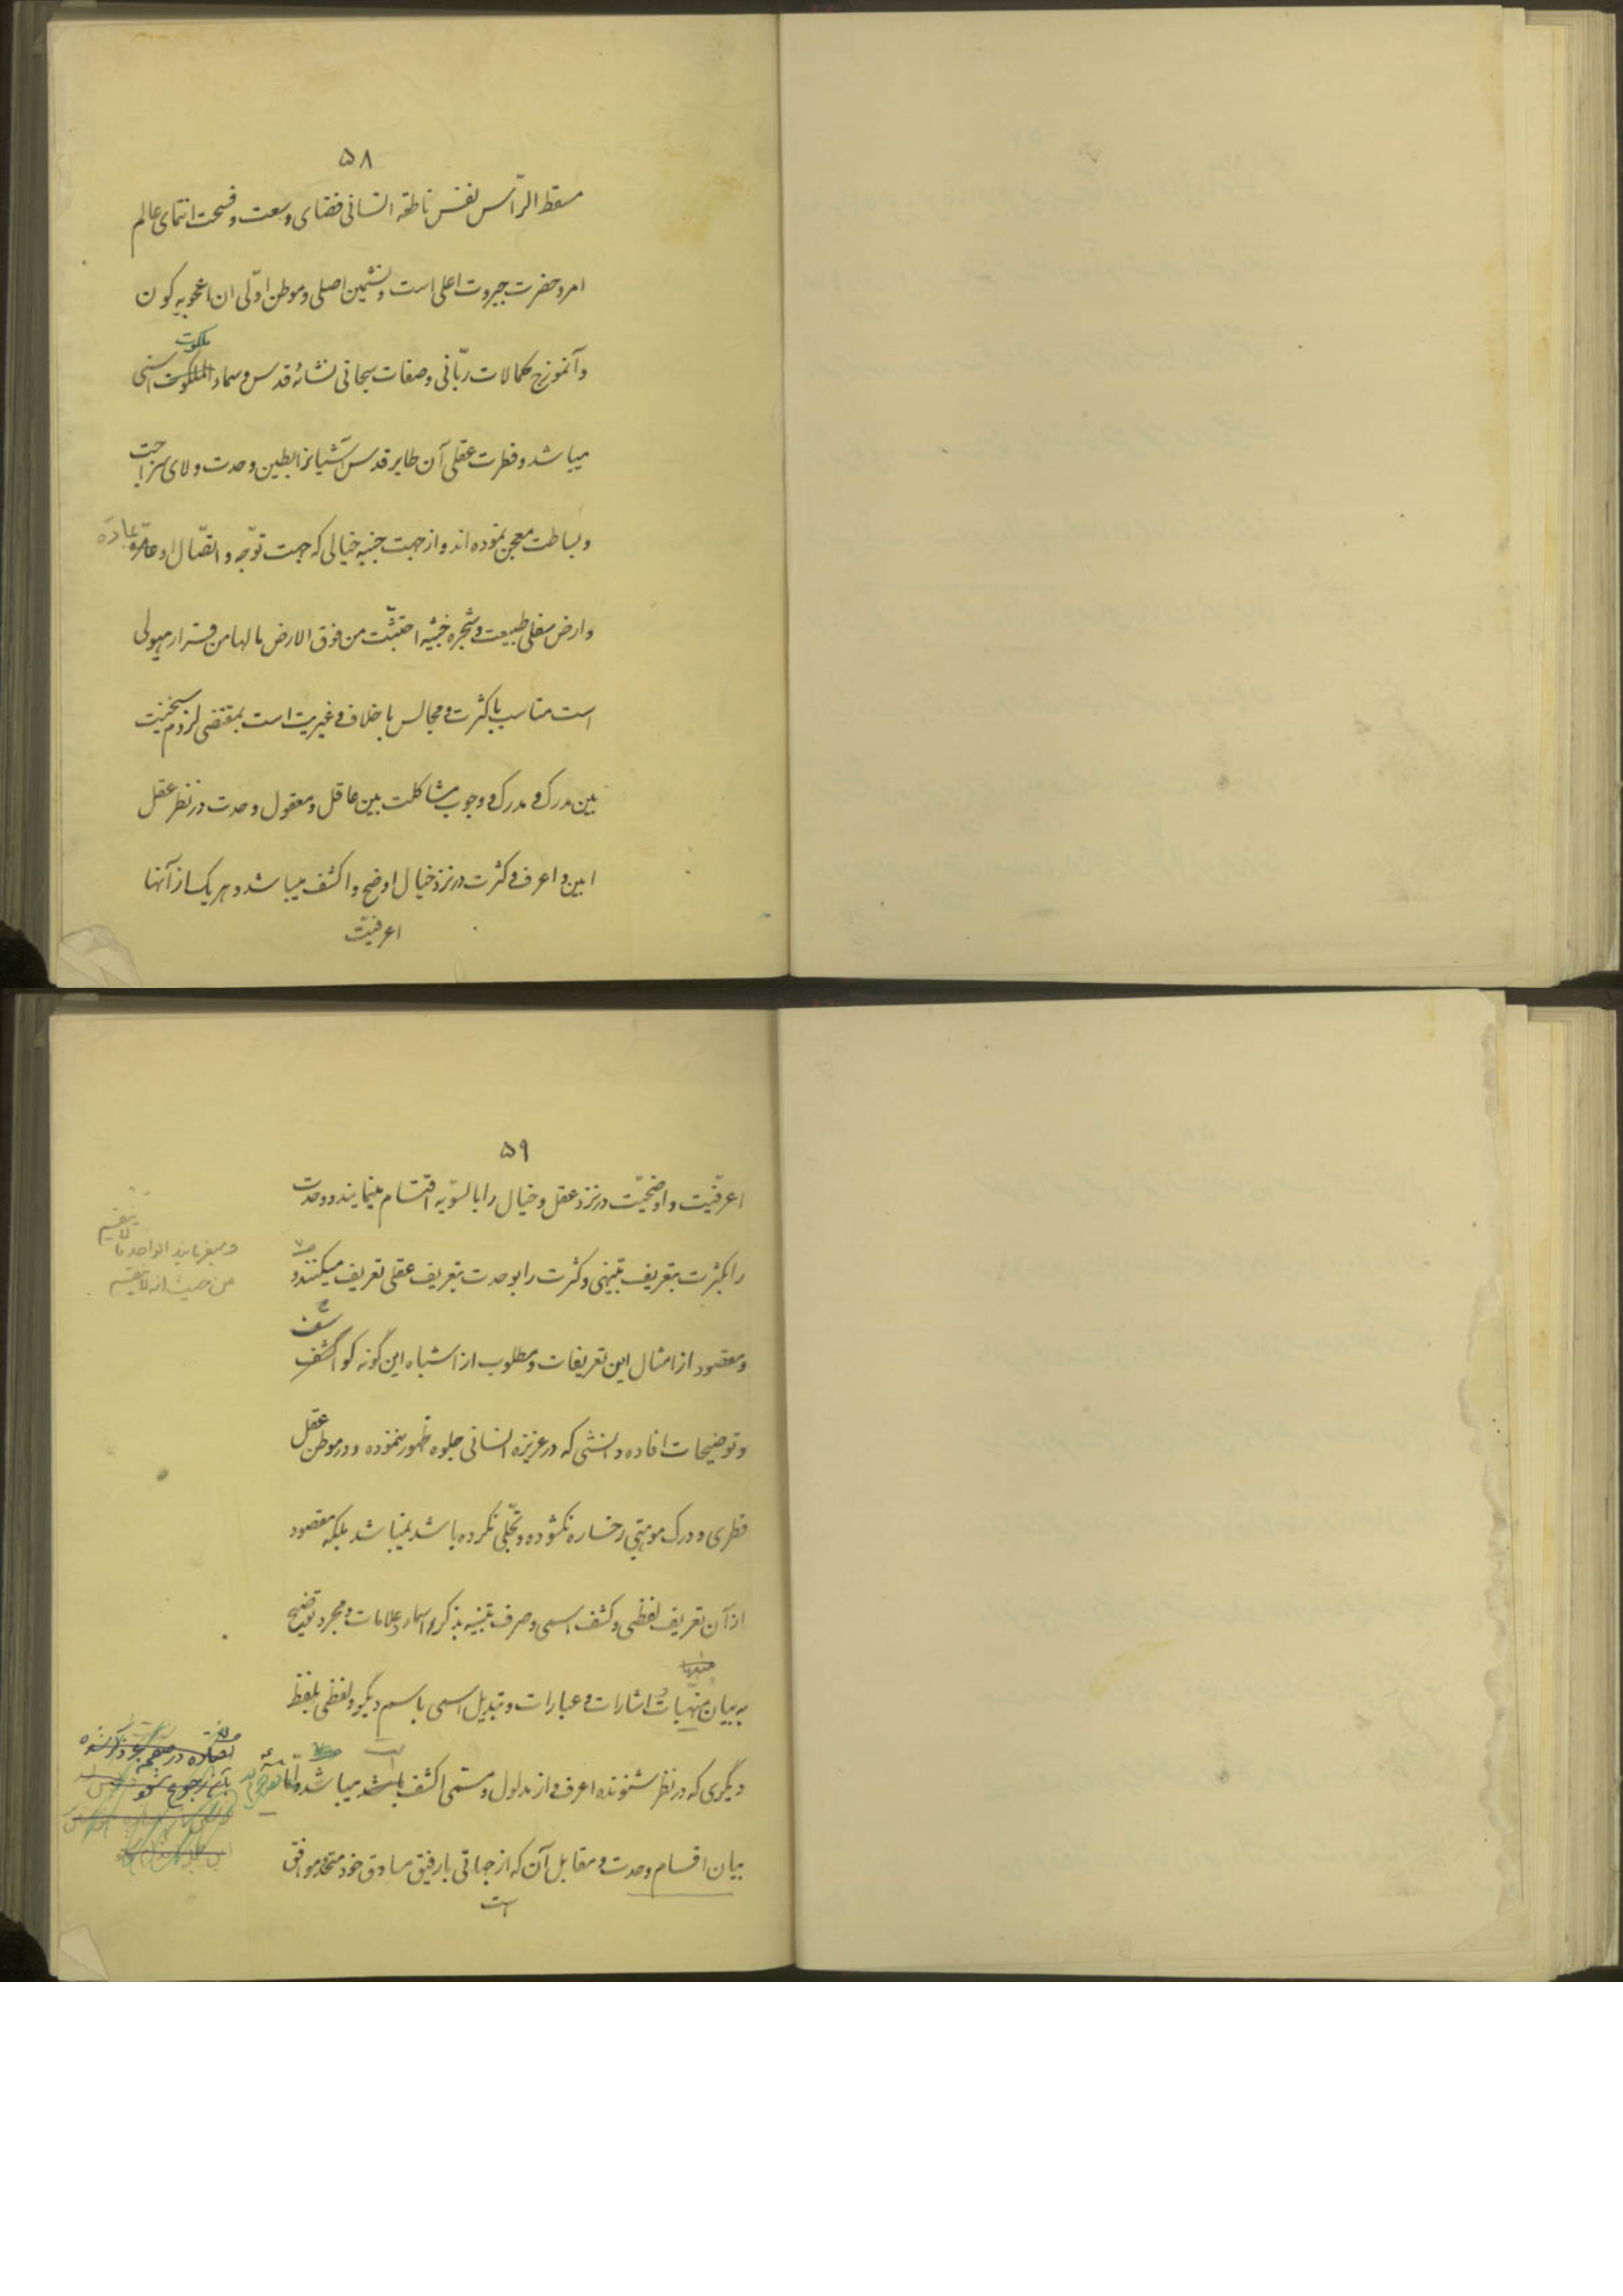 ۵۸
مسقط الرّأس نفس ناطقه انسانی فضای وسعت و فسحت انتمای عالم
امر و حضرت جبروت اعلی است و نشیمن اصلی و موطن اوّلی ان اعجوبه کون
ملکوت
و آنموزج کمالات ربّانی و صفات سبحانی نشائه قدس و سماء الملکوت اسنی
میباشد و فطرت عقلی آن طایر قدس آشیانرا بطین وحدت و لای
و بساطت معجن نموده‌اند و از جهت جنبه خیالی که جهت توّجه و اتصّال او بمادّه
و ارض سفلی طبیعت و شجره خبیثه اجتثّت من فوق الارض مالها من قرار هیولی
است مناسب باکثرت و مجالس با خلاف و غیریت است بمقتضی لزوم سنخیت
بین مدرک و مدرک و وجوب مشاکلت بین عاقل و معقول وحدت در نظر عقل
ابین و اعرف و کثرت در نزد خیال اوضح و اکشف میباشد و هر یک از آنها
اعرفیّت
۵۹
اعرفیّت و اوضحیّت در نزد عقل و خیال را بالسّویه اقتسام مینمایند و وحدت
را بکثرت بتعریف تنبیهی و کثرت را بوحدت بتعریف عقلی تعریف میکنند و
و میفرمایند الواحد ما لا ینقسم
من حیث انه لا ینقسم
و مقصود از امثال این تعریفات و مطلوب از اشباه این گونه کواشف
و توضیحات افاده دانشی که در غریزه انسانی جلوه ظهور ننموده و در موطن عقل
فطری و درک موهبتی رخساره نگشوده و تجلّی نکرده باشد نمیباشد بلکه مقصود
از آن تعریف لفظی و کشف اسمی و صرف تنبیه بذکر اسماء و علامات و مجرد توضیح
به بیان منبّهات و اشارات و عبارات و تبدیل اسمی باسم دیگر و لفظی بلفظ
دیگری که در نظر شنونده اعرف و از مدلول و مسمّی اکشف است میباشد و امّا
بیان اقسام وحدت و مقابل آن که از جهاتی با رفیق مساوق خود متحد و موافق
است